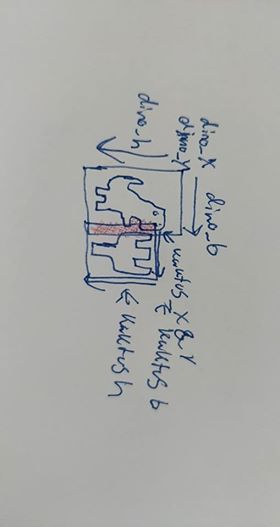 dino_X
dino_Y
dino_b
dino_h
kaktus_X & Y
kaktus b
kaktus h